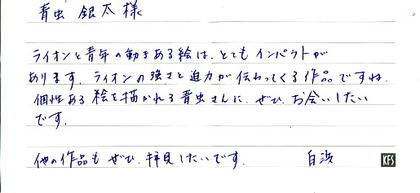 青虫 銀太様
ライオンと青年の動きある絵は、とてもインパクトが
あります。ライオンの強さと迫力が伝わってくる作品ですね。
個性ある絵を描かれる青虫さんに、ぜひ、お会いしたい
です。
他の作品もぜひ、拝見したいです。 白浜
KFS